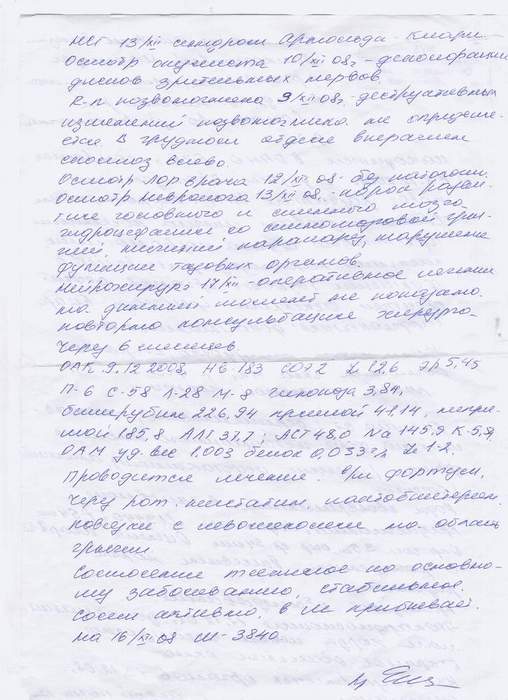 НСГ 13/XII синдром Арнольда-Киари
Осмотр окулиста 10/XII 08г - деколорация
дисков зрительных нервов
R-п позвоночника 9/XII 08г - деструктивных
изменений позвоночника не определяе-
тся. В грудном отделе
сколиоз влево.
Осмотр ЛОР врача 12/XII 08 - без патологии.
Осмотр невролога 13/XII 08, - порок разви-
тия головного и спинного мозга
гидроцефалии со спинномозговой гры-
жей, нижний парапарез, нарушени
функции тазовых органов.
Нейрохирург 17/XII - оперативное лечение
на данный момент не показано.
повторно консультация хирурга
через 6 месяцев.
ОАК 9.12 2008, Нб-183 СОЭ 2 L 12,6 Эр 5,45
П-6 С-58 Л-28 М-8 глюкоза 3,84,
билирубин 226,94 прямой 41.14, непря-
мой 185,8 АЛТ 37,7; АСТ 48,0 Na 145.9 К-5,9,
ОАМ уд. вес 1.003 белок 0,033 г/л L 1-2.
Проводится лечение: в/м фортум,
через рот: нистатин,
повязки с левомеколем на област
грыжи
Состояние тяжелое по основно-
му заболеванию, стабильное.
Сосет активно, в м прибывает.
на 16/XII-08 м-3840